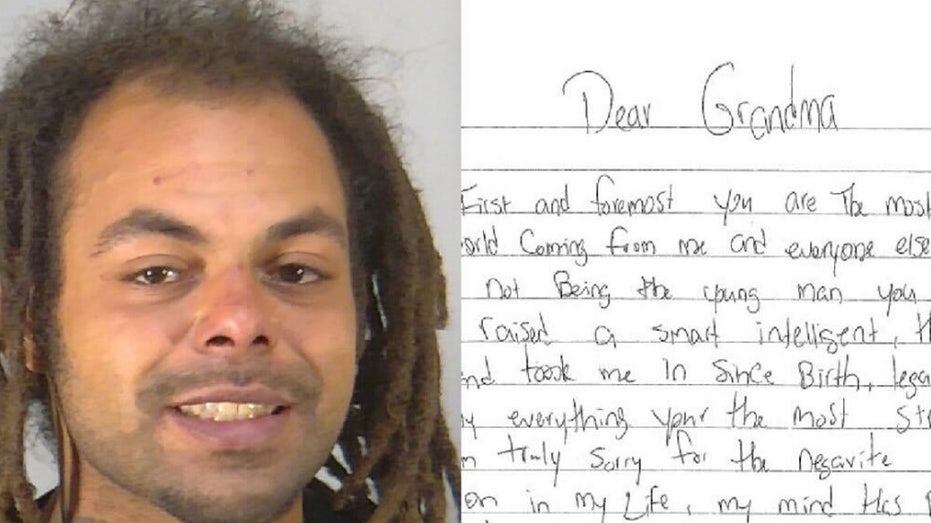 Dear Grandma
First and foremost you are The most
orld Coming from me and everyone else
not Being the young man you
raised a smart intelligent, th
nd took me In Since Birth, lega
y everything your the most St
m truly sorry for the negavite
on in my Life, my mind Has